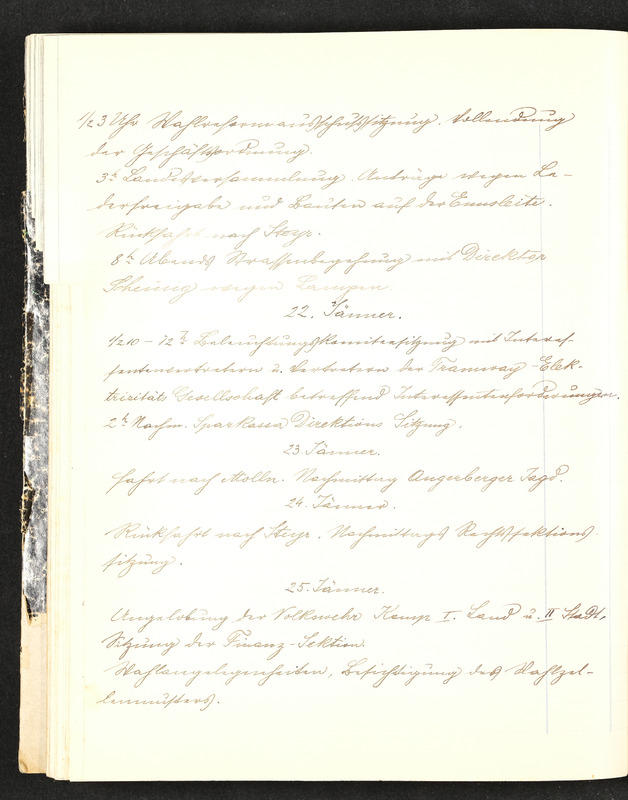 1/2 3 Uhr Wahlreformausschußsitzung. Vollendung
der Geschäftsordnung.
3h Landesversammlung. Anträge wegen Le-
derfreigabe und Bauten auf der Ennsleite.
Rückfahrt nach Steyr.
8h Abends Strassenbegehung mit Direktor
wegen Lampen.
22. Jänner.
1/2 10 - 12h Beleuchtungskomiteesitzung mit Interes-
sentenvertretern u. Vertretern der Tramway-Elek-
trizitäts Gesellschaft betreffend Interessentenforderungen.
2h Nachm. Sparkassa Direktions Sitzung.
23. Jänner.
Fahrt nach Molln. Nachmittag Jagd.
24. Jänner.
Rückfahrt nach Steyr. Nachmittags Rechtssektions
sitzung.
25. Jänner.
Angelobung der Volkswehr Komp I. Land u. II Stadt.
Sitzung der Finanz-Sektion.
Wahlangelegenheiten, Besichtigung des Wahlzel-
lenmusters.